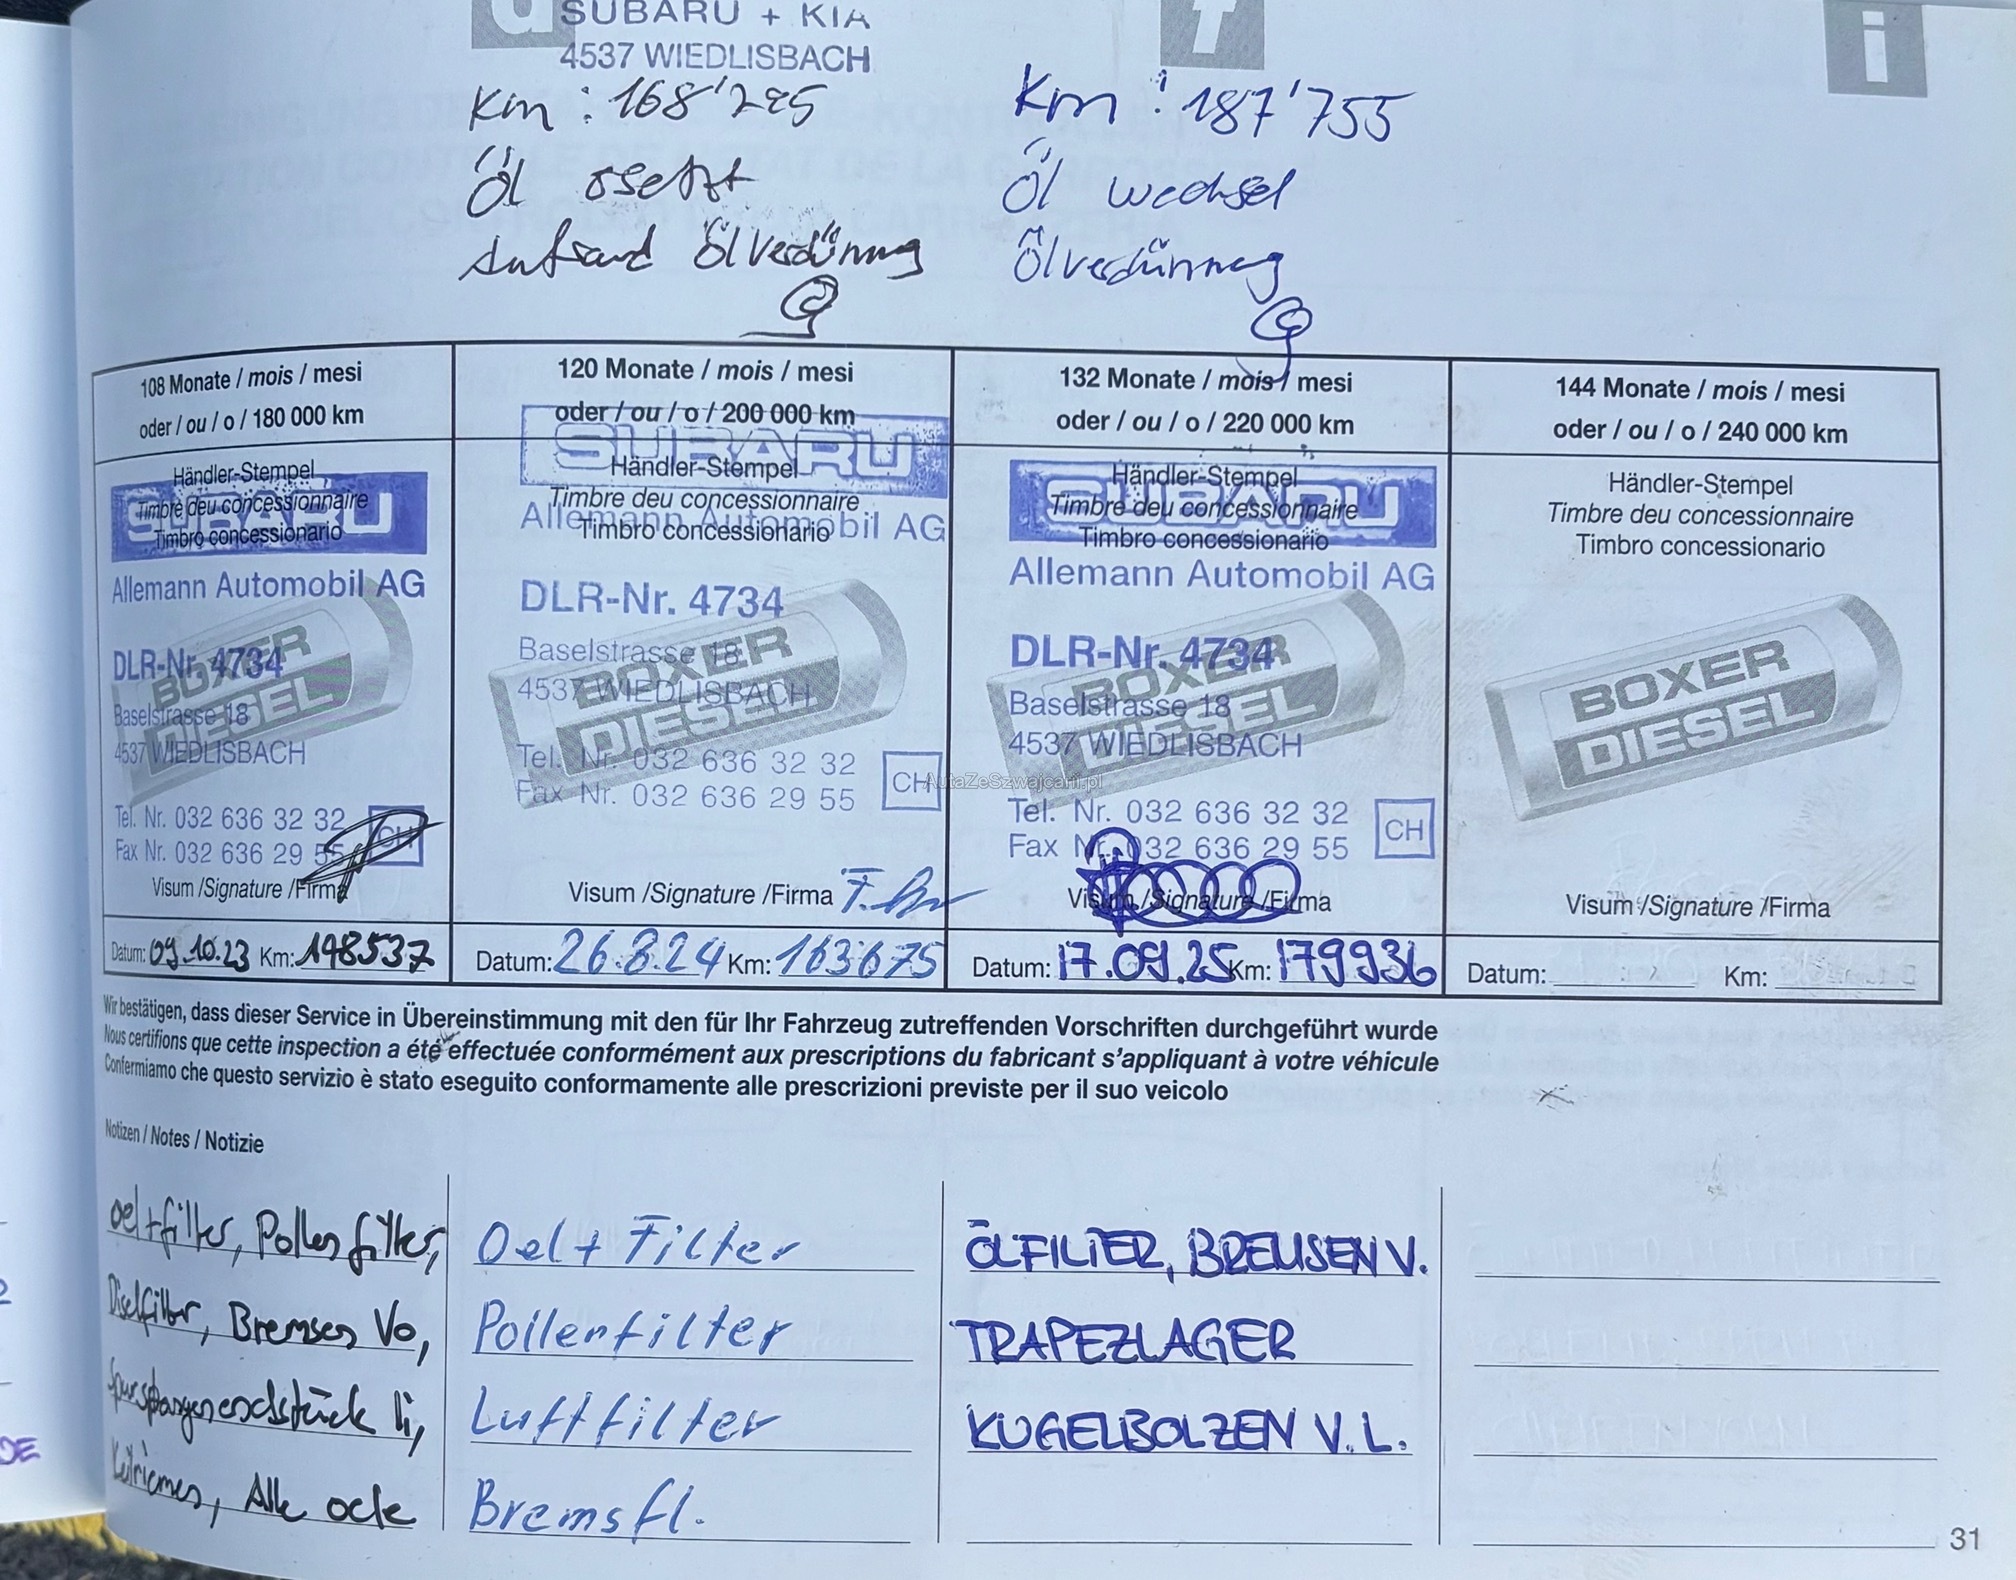 d
SUBARU + KIA
4537 WIEDLISBACH
Km: 168'295
Öl
Ölverdünnung
f
Km: 187'755
Öl wechsel
Ölverdünnung
i
108 Monate / mois / mesi
oder / ou / o / 180 000 km
Händler-Stempel
Timbre deu concessionnaire
Timbro concessionario
SUBARU
Allemann Automobil AG
DLR-Nr. 4734
Baselstrasse 18
4537 WIEDLISBACH
BOXER
DIESEL
Tel. Nr. 032 636 32 32
Fax Nr. 032 636 29 55
CH
Visum /Signature /Firma
Datum: 09.10.23 Km: 148537
120 Monate / mois / mesi
oder / ou / o / 200 000 km
SUBARU
Händler-Stempel
Timbre deu concessionnaire
Timbro concessionario
Allemann Automobil AG
DLR-Nr. 4734
Baselstrasse 18
4537 WIEDLISBACH
BOXER
DIESEL
Tel. Nr. 032 636 32 32
Fax Nr. 032 636 29 55
CH
Visum /Signature /Firma
Datum: 26.8.24 Km: 163675
132 Monate / mois / mesi
oder / ou / o / 220 000 km
Händler-Stempel
Timbre deu concessionnaire
Timbro concessionario
SUBARU
Allemann Automobil AG
DLR-Nr. 4734
Baselstrasse 18
4537 WIEDLISBACH
BOXER
DIESEL
AutaZeSzwajcarii.pl
Tel. Nr. 032 636 32 32
Fax Nr. 032 636 29 55
CH
Visum /Signature /Firma
Datum: 17.09.25 Km: 179936
144 Monate / mois / mesi
oder / ou / o / 240 000 km
Händler-Stempel
Timbre deu concessionnaire
Timbro concessionario
BOXER
DIESEL
Visum /Signature /Firma
Datum: Km:
Wir bestätigen, dass dieser Service in Übereinstimmung mit den für Ihr Fahrzeug zutreffenden Vorschriften durchgeführt wurde
Nous certifions que cette inspection a été effectuée conformément aux prescriptions du fabricant s'appliquant à votre véhicule
Confermiamo che questo servizio è stato eseguito conformamente alle prescrizioni previste per il suo veicolo
Notizen / Notes / Notizie
oel+filter, Pollenfilter,
Diselfilter, Bremsen Vo,
li,
Keilriemen, Alle
Oel + Filter
Pollenfilter
Luftfilter
Bremsfl.
ÖLFILTER, BREMSEN V.
TRAPEZLAGER
KUGELBOLZEN V. L.
DE
31